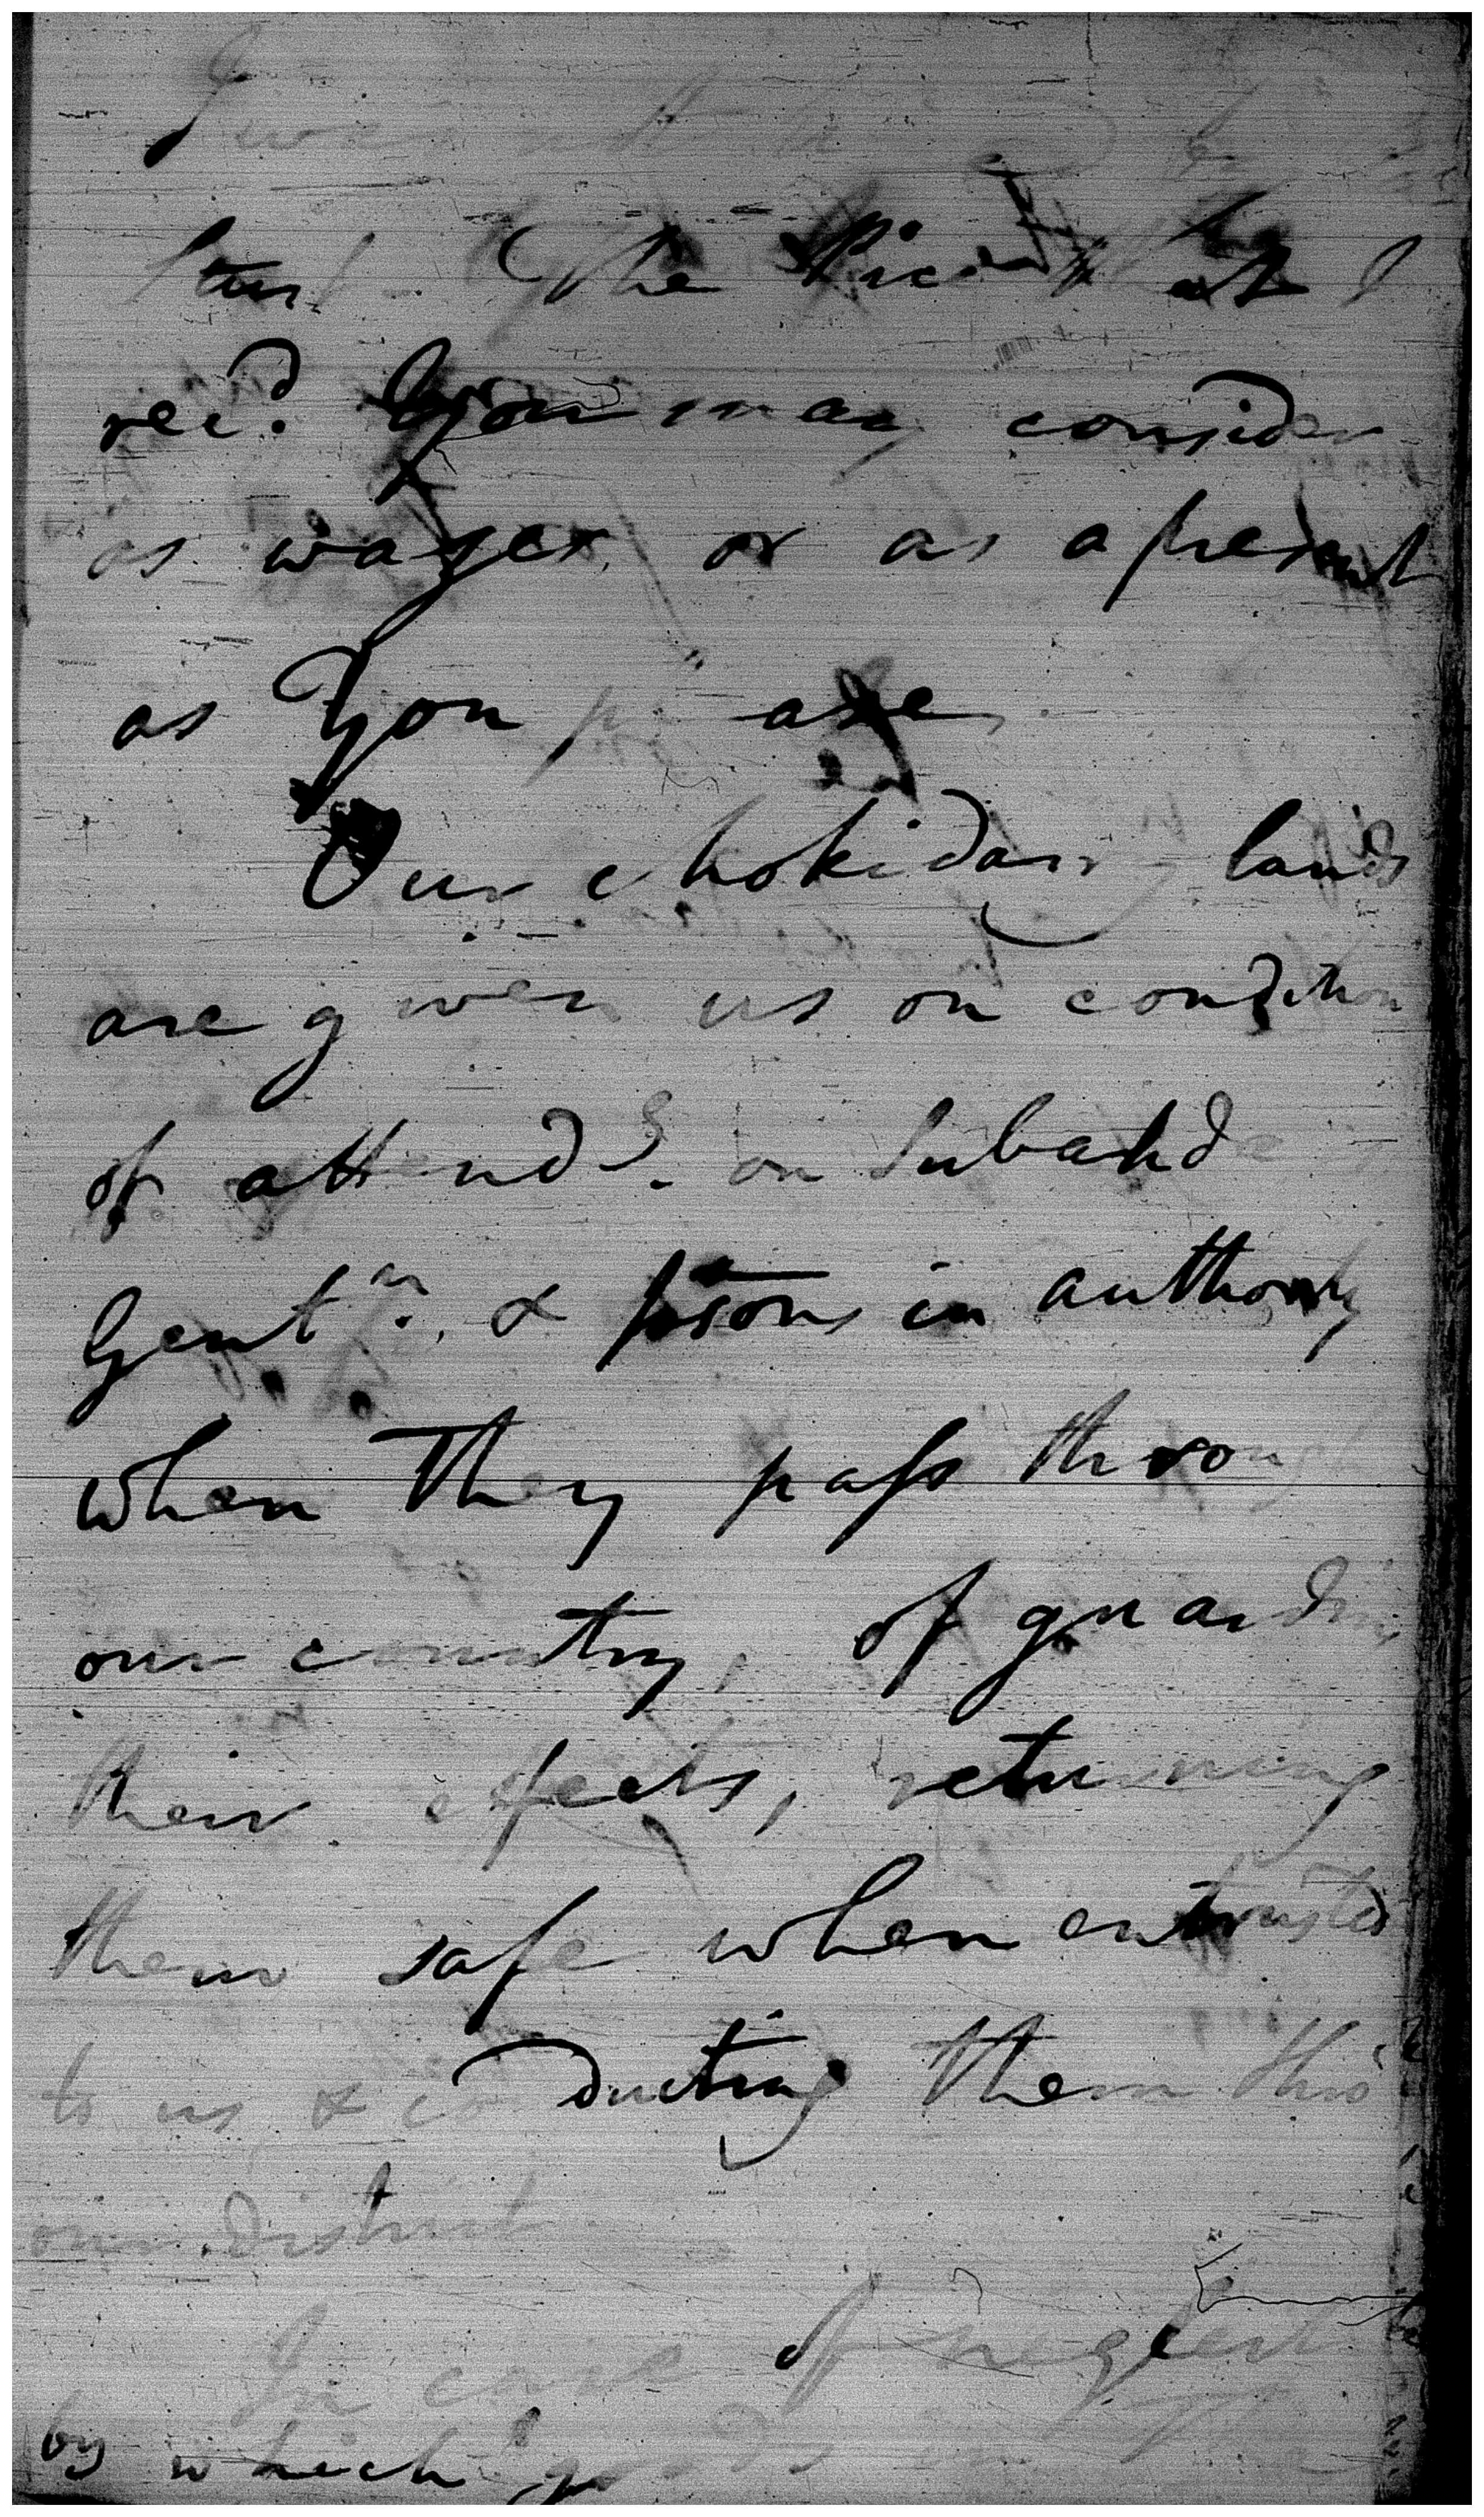 I was not
The Rice that I
rec.d You may consider
as wages, or as a present
as You please
Our chokidary lands
are given us on condition
of attend.g on Subahds
Gentn. & psons in authority
when They pass through
our country, of guarding
their effects, returning
them safe when entrusted
to us & conducting them thro'
our district
In case of neglect
by which goods